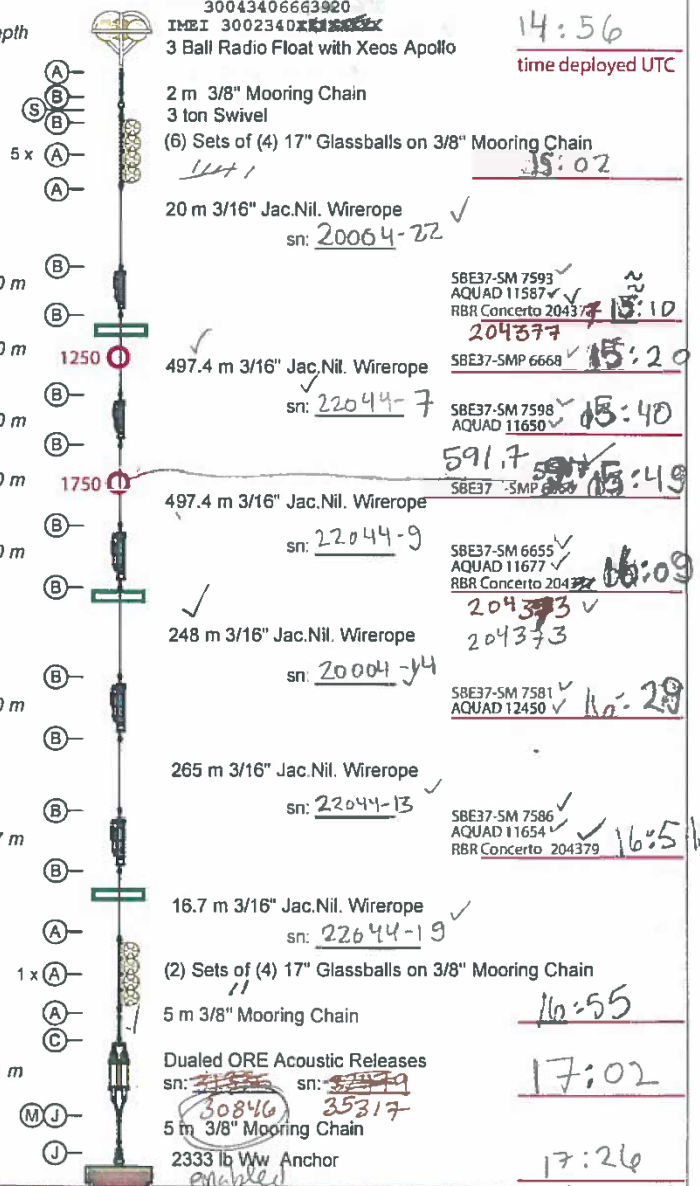 30043406663920
IMEI 3002340
3 Ball Radio Float with Xeos Apollo
14:56
time deployed UTC
A
B
S
B
2 m 3/8" Mooring Chain
3 ton Swivel
(6) Sets of (4) 17" Glassballs on 3/8" Mooring Chain
5 x A
15:02
A
20 m 3/16" Jac.Nil. Wirerope ✓
sn: 20004-22
B
0 m
SBE37-SM 7593 ✓
AQUAD 11587 ✓
RBR Concerto 204377 ✓ 15:10
204377
B
0 m
1250
497.4 m 3/16" Jac.Nil. Wirerope ✓
SBE37-SMP 6668 ✓ 15:20
sn: 22044-7 ✓
B
0 m
SBE37-SM 7598 ✓
AQUAD 11650 ✓ 15:40
B
5917
0 m
1750
SBE37 -SMP 15:49
497.4 m 3/16" Jac.Nil. Wirerope
sn: 22044-9
B
0 m
SBE37-SM 6655 ✓
AQUAD 11677 ✓
RBR Concerto 204 16:09
B
204373 ✓
204373
248 m 3/16" Jac.Nil. Wirerope ✓
sn: 20004-14
B
0 m
SBE37-SM 7581 ✓
AQUAD 12450 ✓ 16:29
B
265 m 3/16" Jac.Nil. Wirerope ✓
sn: 22044-13
B
7 m
SBE37-SM 7586 ✓
AQUAD 11654 ✓
RBR Concerto 204379 ✓ 16:51
B
16.7 m 3/16" Jac.Nil. Wirerope ✓
sn: 22044-19
A
1 x A
(2) Sets of (4) 17" Glassballs on 3/8" Mooring Chain
A
5 m 3/8" Mooring Chain
16:55
C
m
Dualed ORE Acoustic Releases
sn: sn:
17:02
30846 35317
M J
5 m 3/8" Mooring Chain
J
2333 lb Ww Anchor
17:26
enabled